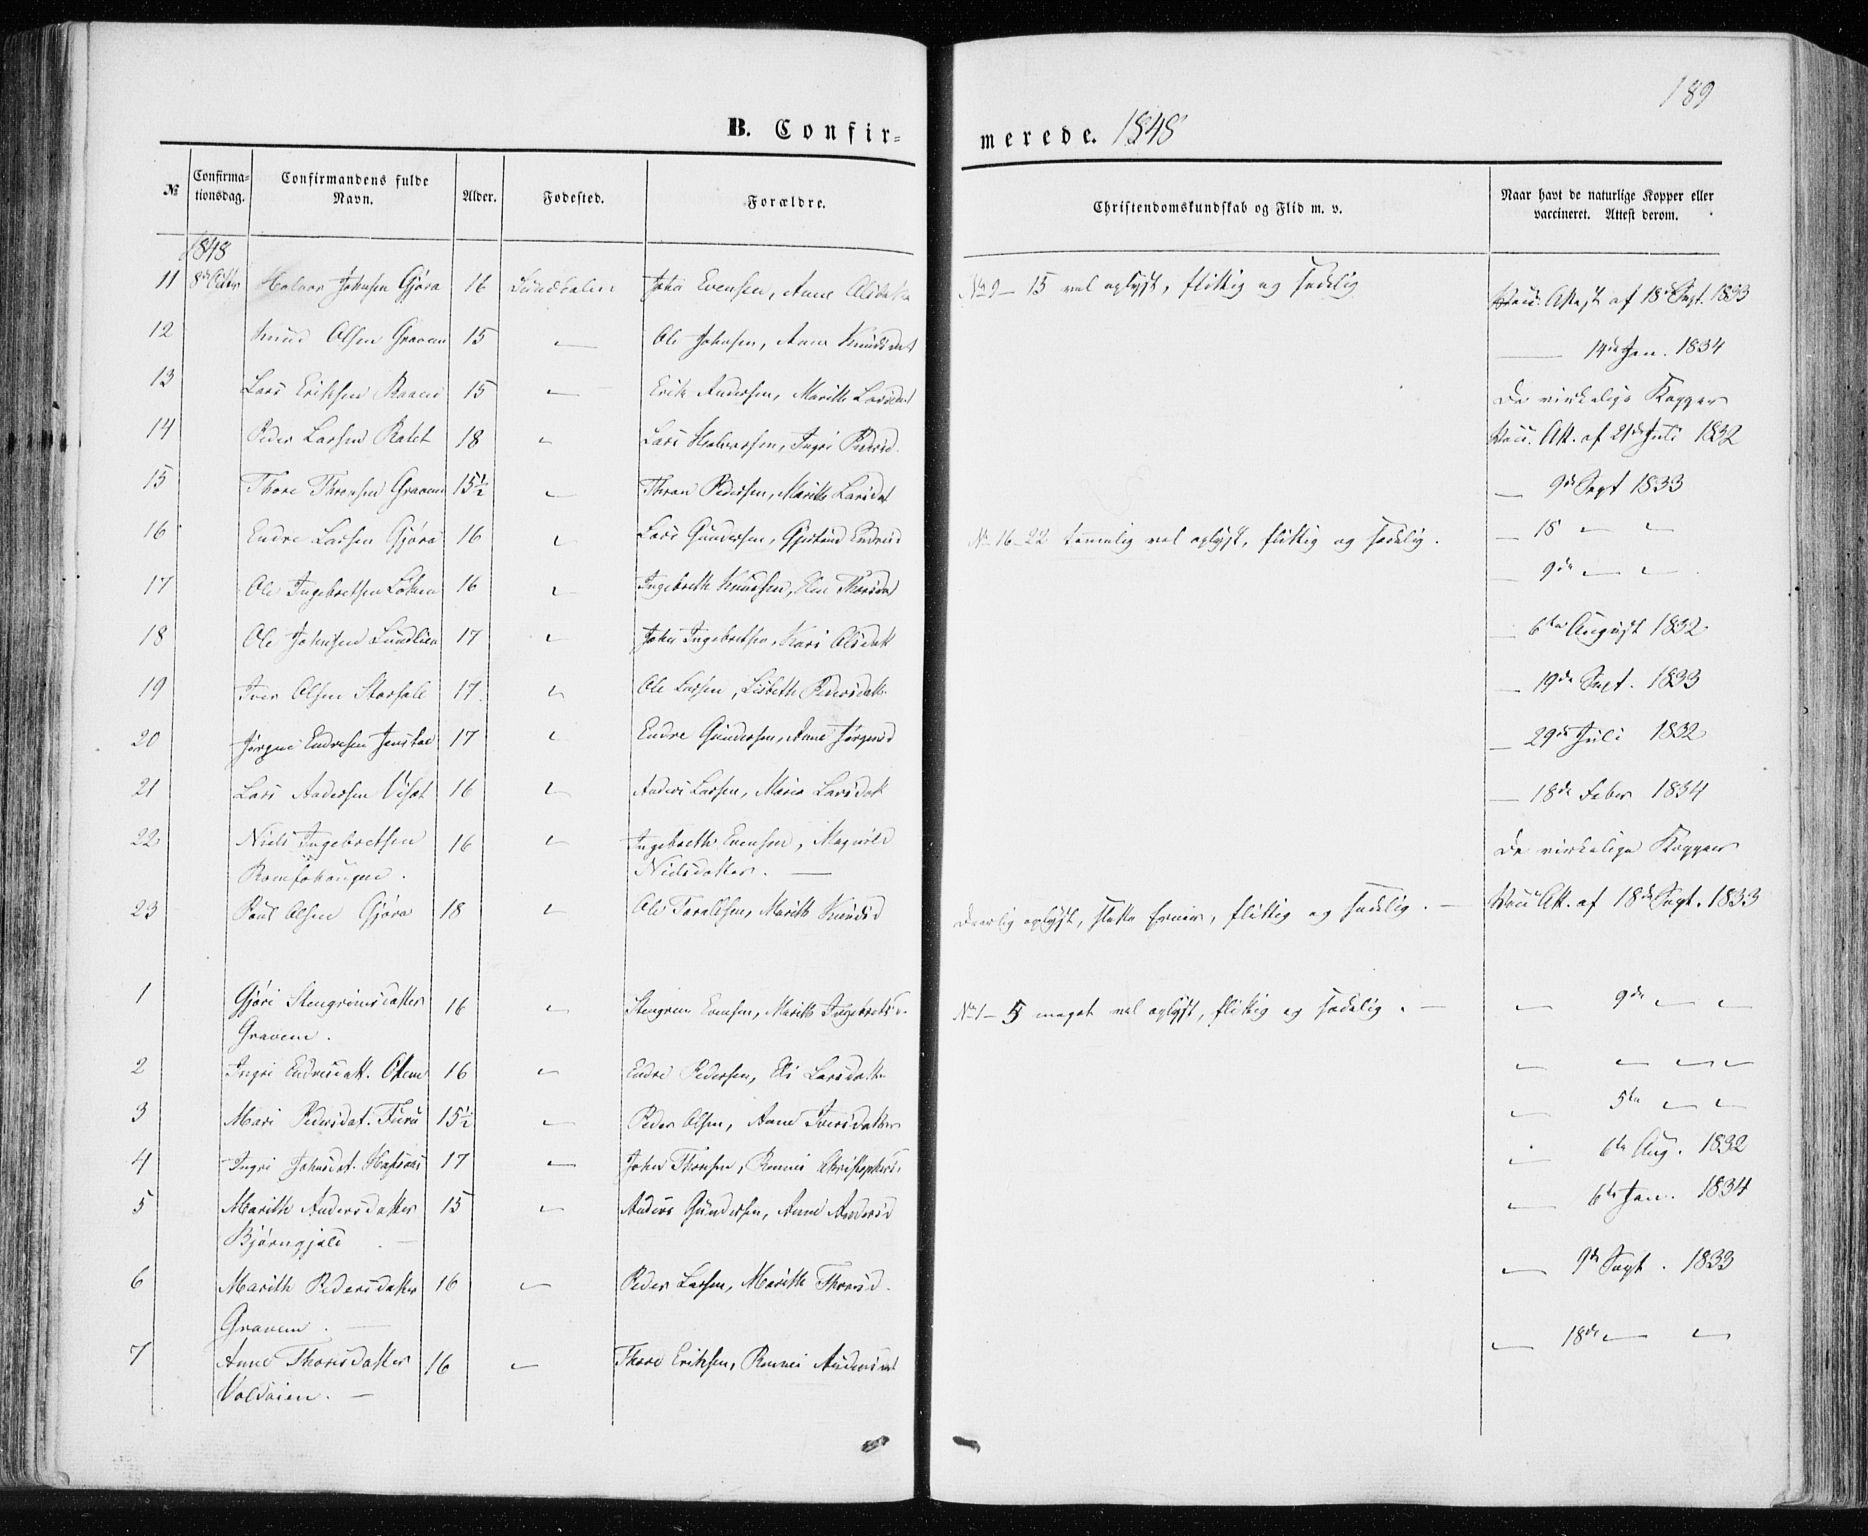 189
B. Confir=
merede. 1848
№
Confirma=
tionsdag.
Confirmandens fulde
Navn.
Alder.
Fødested.
Forældre.
Christendomskundskab og Flid m. v.
Naar havt de naturlige Kopper eller
vaccineret. Attest derom.
1848
11 8de Halvor Johnsen Gjøra 16 Sundalen John Evensen, Anne Olsdatt No 9 – 15 vel oplyst, flittig og sædelig Vacc. Attest af 18de Sept. 1833
12 Knud Olsen Gravem 15 〃 Ole Johnsen, Anne Knudsdat — 14de Jan. 1834
13 Lars Eriksen 15 〃 Erik Andersen, Marith Larsdat De virkelige Kopper
14 Peder Larsen 18 〃 Lars Halvorsen, Ingri Pedersd. Vacc. Att. af 21de Juli 1832
15 Thore Thronsen Gravem 15½ 〃 Thron Pedersen, Marith Larsdat — 9de Sept 1833
16 Endre Larsen Gjøra 16 〃 Lars Gundersen, Gjertrud Endresd No 16 – 22 temmelig vel oplyst, flittig og sædelig. — 18 〃 〃
17 Ole Ingebretsen Løken 16 〃 Ingebreth Knudsen, Thorsdat — 9de 〃 〃
18 Ole Johnsen Sundlien 17 〃 John Ingebretsen, Kari Olsdatt — 6te August 1832
19 Iver Olsen Storfale 17 〃 Ole Larsen, Lisbeth Pedersdatt — 19de Sept. 1833
20 Jørgen Endresen Jenstad 17 〃 Endre Gundersen, Anne Jørgensd — 29de Juli 1832
21 Lars Andersen 16 〃 Anders Larsen, Marit Larsdatt — 18de Feber 1834
22 Niels Ingebretsen 16 〃 Ingebreth Evensen, Magnild De virkelige Kopper
Romfohaugen. Nielsdatter. —
23 Paul Olsen Gjøra 18 〃 Ole Toralfsen, Marith Knudsd oplyst, flittig og sædelig. — Vacc Att. af 18de Sept. 1833
1 Gjøri Stengrimsdatter 16 〃 Stengrim Evensen, Marith Ingebretsd. No 1 – 5 meget vel oplyst, flittig og sædelig. — — 9de 〃 〃
Gravem.
2 Ingri Endresdatt. 16 〃 Endre Pedersen, Larsdatter 〃 〃 〃 〃
3 Mari Pedersdat. Furu 15½ 〃 Peder Olsen, Anne Iversdatter — 5te 〃 〃
4 Ingri Johnsdat. 17 〃 John Thoresen, 6te Aug. 1832
5 Marith Andersdatter 15 〃 Anders Gundersen, Anne Andersd — 6te Jan. 1834
—
6 Marith Pedersdatter 16 〃 Peder Larsen, Marith Thoresd. — 9de Sept. 1833
Gravem. —
7 Anne Thoresdatter 16 〃 Thore Eriksen, — 18de 〃 〃
Voldoien. —